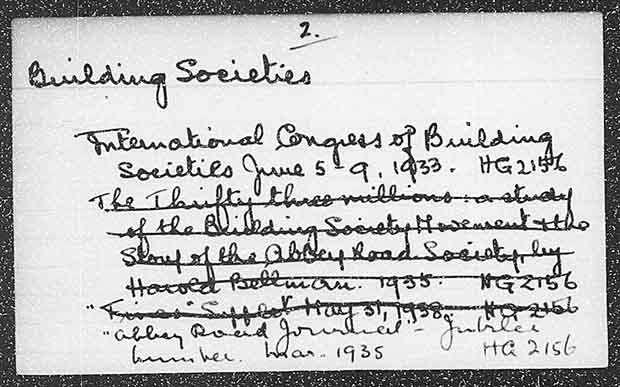 2.
Building Societies
International Congress of Building
Societies June 5-9, 1933. HG2156
The Thrifty three millions: a study
of the Building Society Movement & the
Story of the Abbey Road Society, by
Harold Bellman. 1935. HG2156
"Times" Supplet May 31, 1938. HG2156
"Abbey Road Journal" - Jubilee
number. Mar. 1935 HG 2156